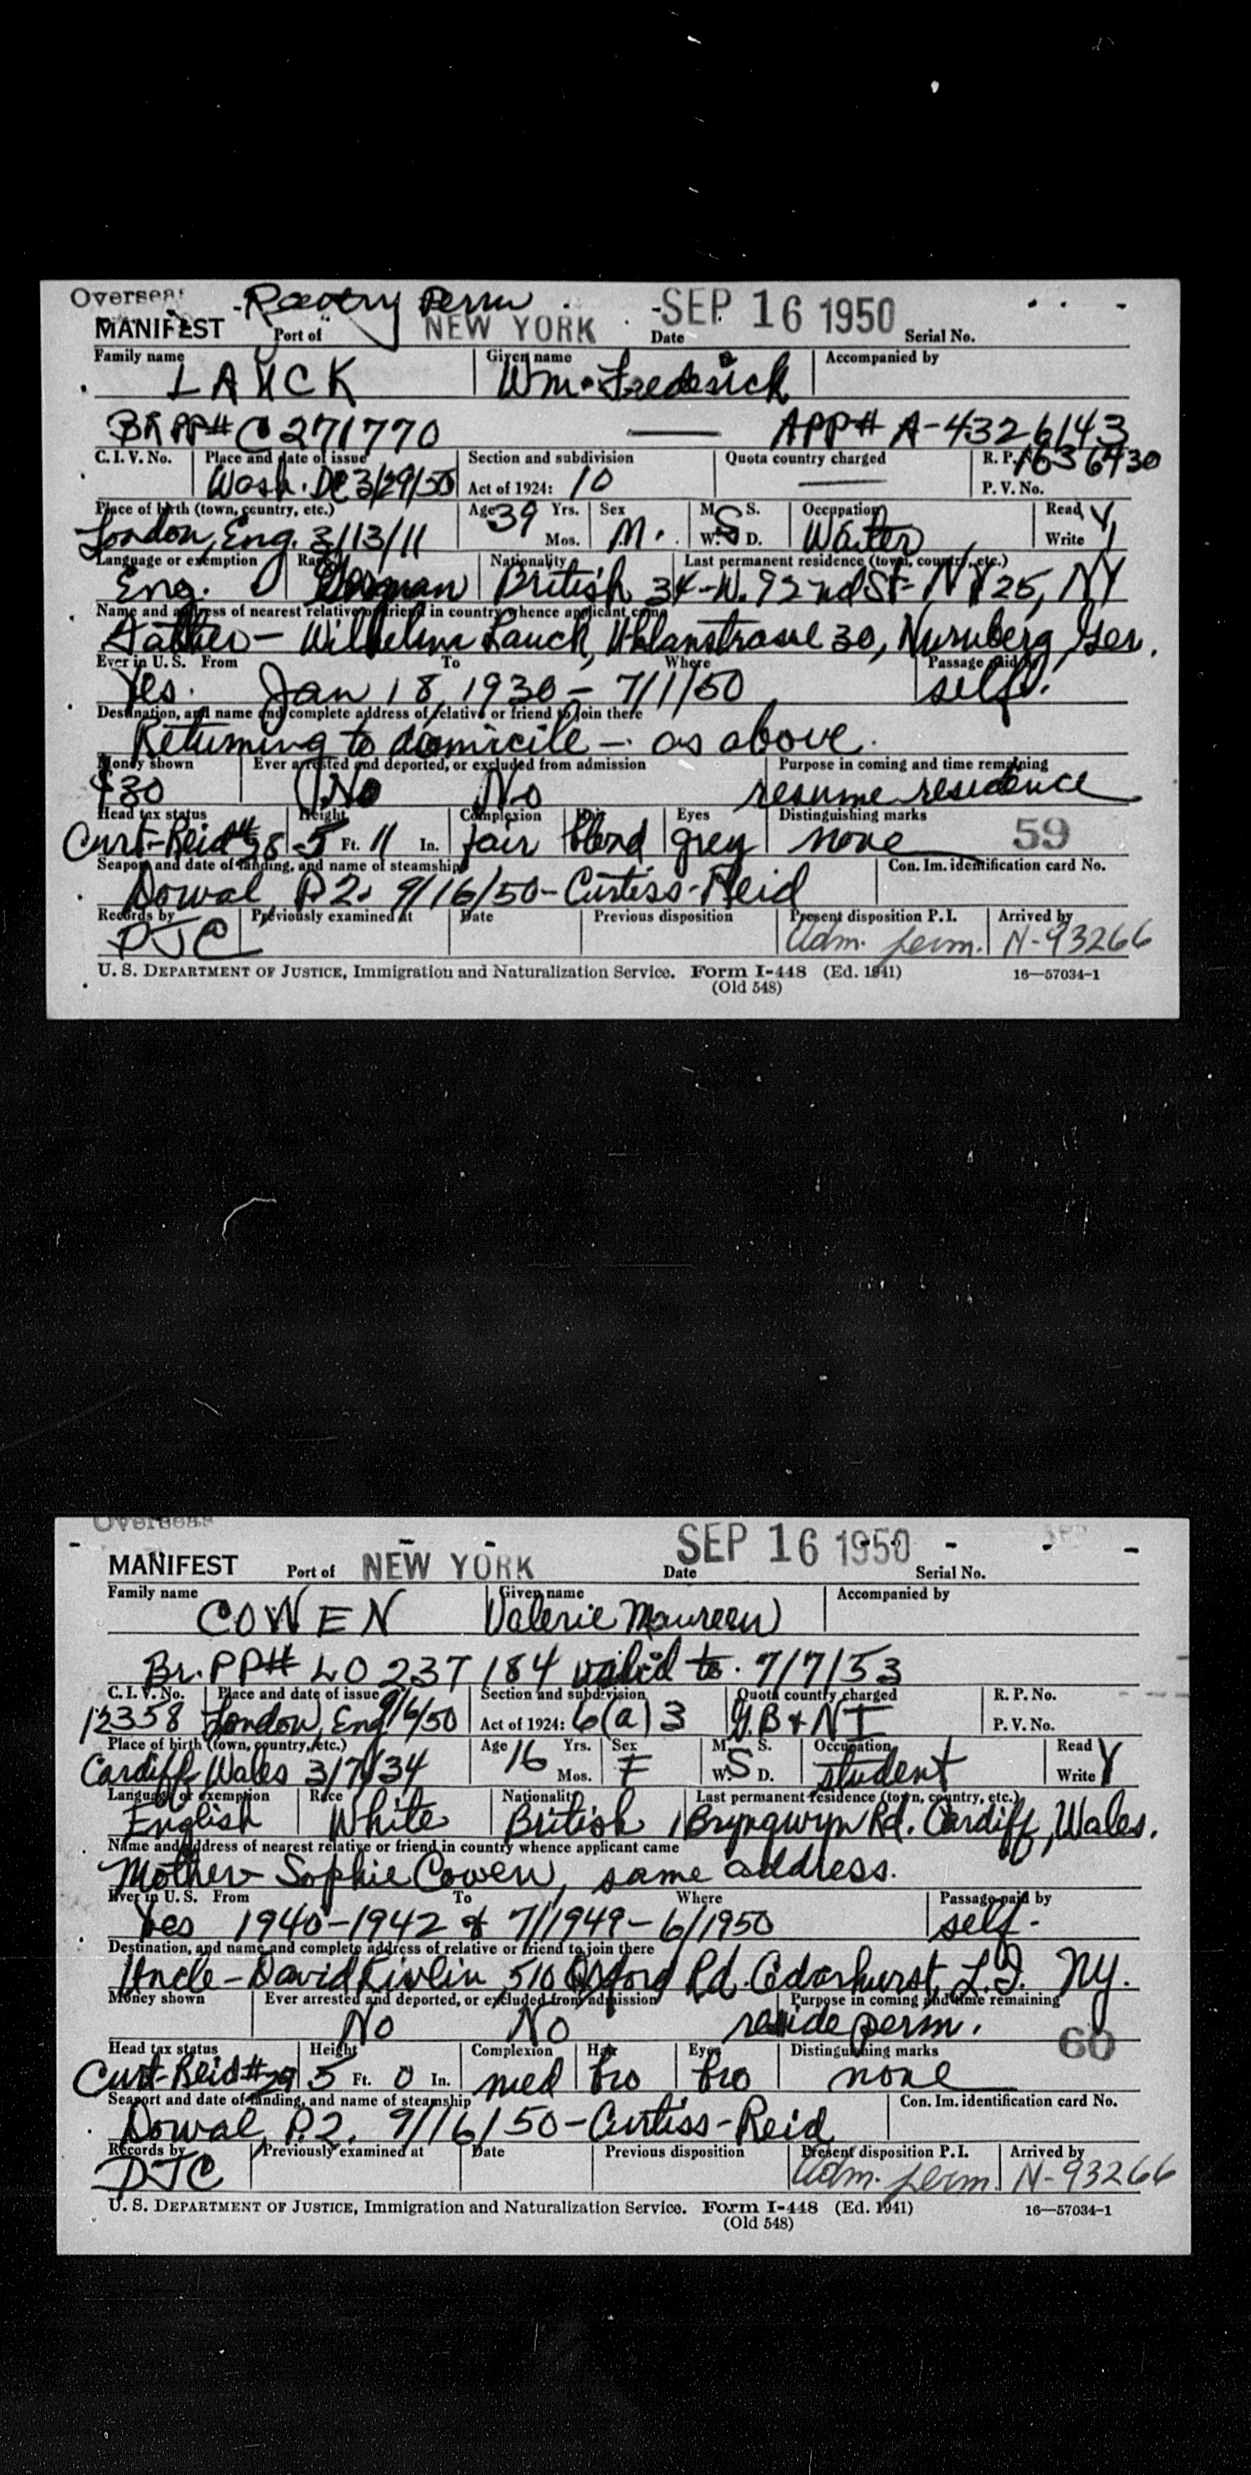 Overseas Reentry Perm
MANIFEST Port of NEW YORK Date SEP 16 1950 Serial No.
Family name Given name Accompanied by
LAUCK Wm. Frederick
Br PP# C 271770 — APP# A-4326143
C. I. V. No. Place and date of issue Section and subdivision Quota country charged R. P. No. 1636930
Wash. DC 3/29/50 Act of 1924: 10 — P. V. No.
Place of birth (town, country, etc.) Age 39 Yrs. Sex M. S. Occupation Read Y
London, Eng. 3/13/11 Mos. M. W. S D. Waiter Write
Language or exemption Race Nationality Last permanent residence (town, country, etc.)
Eng. German British 34-W. 92nd St- NY 25, NY
Name and address of nearest relative or friend in country whence applicant came
Father - Wilhelm Lauck, Uhlanstrasse 30, Nurnberg, Ger.
Ever in U. S. From To Where Passage paid by
Yes. Jan 18, 1930 - 7/1/50 self.
Destination, and name and complete address of relative or friend to join there
Returning to domicile - as above.
Money shown Ever arrested and deported, or excluded from admission Purpose in coming and time remaining
$30 No No resume residence
Head tax status Height Complexion Hair Eyes Distinguishing marks 59
Curt-Reid # 28 5 Ft. 11 In. fair blond grey none
Seaport and date of landing, and name of steamship Con. Im. identification card No.
Dowal P2. 9/16/50 - Curtiss-Reid
Records by Previously examined at Date Previous disposition Present disposition P. I. Arrived by
DJC adm. perm. N-93266
U. S. DEPARTMENT OF JUSTICE, Immigration and Naturalization Service. Form I-448 (Ed. 1941) 16—57034-1
(Old 548)
Overseas
MANIFEST Port of NEW YORK Date SEP 16 1950 Serial No.
Family name Given name Accompanied by
COWEN Valerie Maureen
Br. PP# LO 237184 valid to. 7/7/53
C. I. V. No. Place and date of issue Section and subdivision Quota country charged R. P. No.
12358 London, Eng 9/6/50 Act of 1924: 6(a)3 G.B & N I P. V. No.
Place of birth (town, country, etc.) Age 16 Yrs. Sex M. S. Occupation Read Y
Cardiff, Wales 3/7/34 Mos. F W. S D. student Write
Language or exemption Race Nationality Last permanent residence (town, country, etc.)
English White British 1 Bryngwyn Rd. Cardiff, Wales.
Name and address of nearest relative or friend in country whence applicant came
Mother - Sophie Cowen, same address.
Ever in U. S. From To Where Passage paid by
Yes 1940-1942 & 7/1949-6/1950 self-
Destination, and name and complete address of relative or friend to join there
Uncle - David Kivlin 510 Oxford Rd. Cedarhurst, L.I. NY.
Money shown Ever arrested and deported, or excluded from admission Purpose in coming and time remaining
No No reside perm.
Head tax status Height Complexion Hair Eyes Distinguishing marks 60
Curt-Reid # 29 5 Ft. 0 In. med bro bro none
Seaport and date of landing, and name of steamship Con. Im. identification card No.
Dowal P2. 9/16/50 - Curtiss-Reid
Records by Previously examined at Date Previous disposition Present disposition P. I. Arrived by
DJC adm. perm. N-93266
U. S. DEPARTMENT OF JUSTICE, Immigration and Naturalization Service. Form I-448 (Ed. 1941) 16—57034-1
(Old 548)